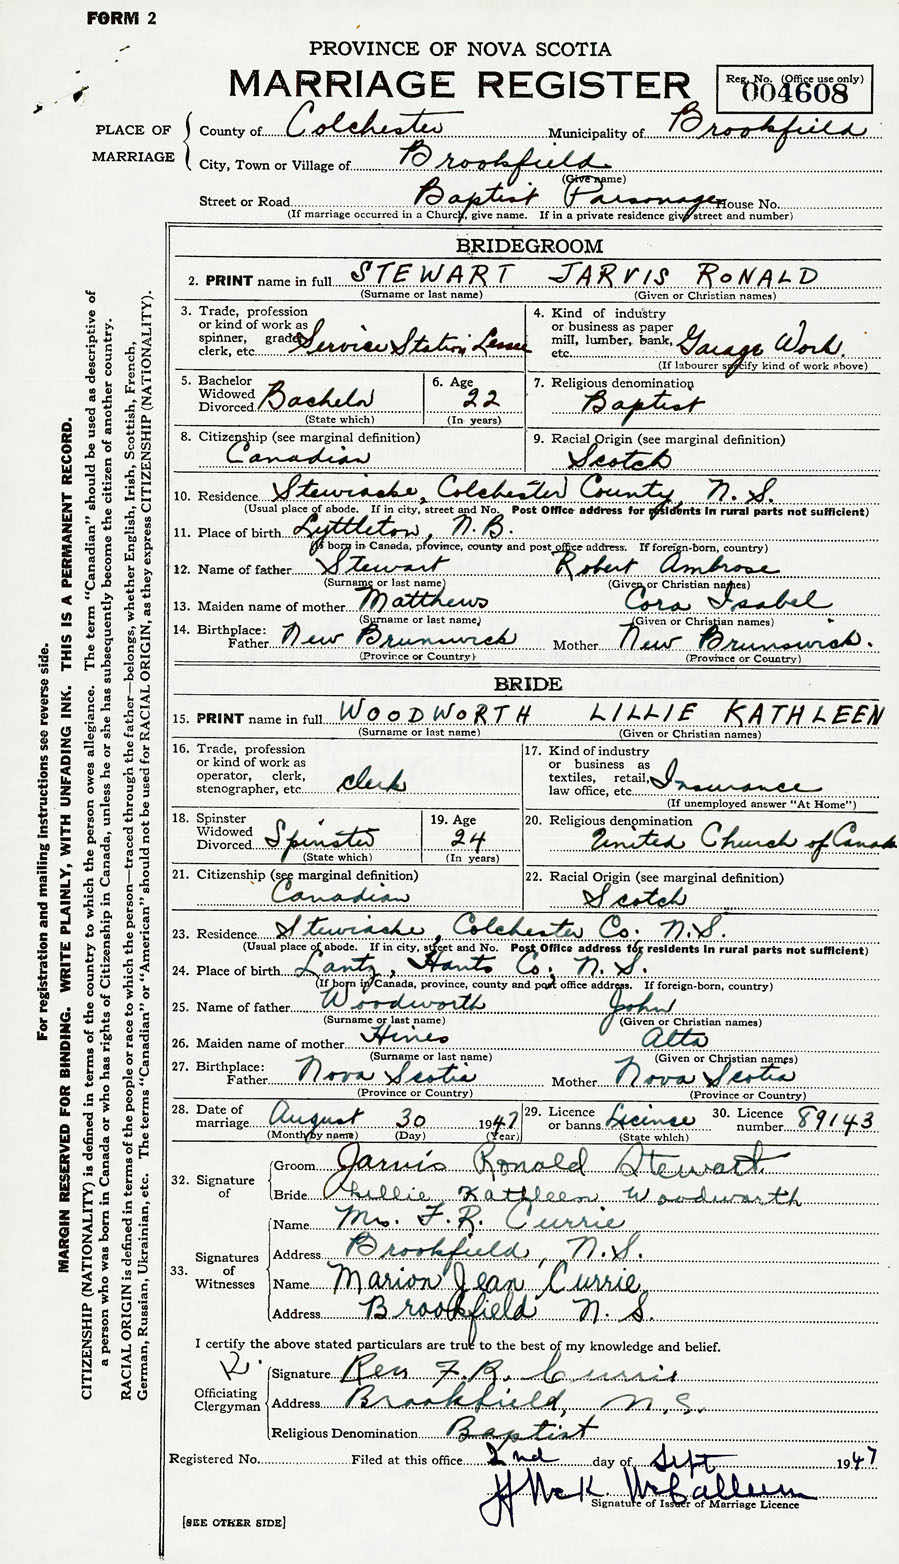 FORM 2
PROVINCE OF NOVA SCOTIA
MARRIAGE REGISTER
Reg. No. (Office use only)
004608
PLACE OF MARRIAGE
County of Colchester Municipality of Brookfield
City, Town or Village of Brookfield
(Give name)
Street or Road Baptist Parsonage House No.
(If marriage occurred in a Church, give name. If in a private residence give street and number)
BRIDEGROOM
2. PRINT name in full STEWART JARVIS RONALD
(Surname or last name) (Given or Christian names)
3. Trade, profession or kind of work as spinner, grader, clerk, etc. Service Station Lessee
4. Kind of industry or business as paper mill, lumber, bank, etc. Garage Work.
(If labourer specify kind of work above)
5. Bachelor Widowed Divorced Bachelor
(State which)
6. Age 22
(In years)
7. Religious denomination
Baptist
8. Citizenship (see marginal definition)
Canadian
9. Racial Origin (see marginal definition)
Scotch
10. Residence Stewiacke, Colchester County, N.S.
(Usual place of abode. If in city, street and No. Post Office address for residents in rural parts not sufficient)
11. Place of birth Lyttleton, N.B.
(If born in Canada, province, county and post office address. If foreign-born, country)
12. Name of father Stewart Robert Ambrose
(Surname or last name) (Given or Christian names)
13. Maiden name of mother Matthews Cora Isabel
(Surname or last name) (Given or Christian names)
14. Birthplace: Father New Brunswick Mother New Brunswick.
(Province or Country) (Province or Country)
BRIDE
15. PRINT name in full WOODWORTH LILLIE KATHLEEN
(Surname or last name) (Given or Christian names)
16. Trade, profession or kind of work as operator, clerk, stenographer, etc. clerk
17. Kind of industry or business as textiles, retail, law office, etc. Insurance
(If unemployed answer "At Home")
18. Spinster Widowed Divorced Spinster
(State which)
19. Age 24
(In years)
20. Religious denomination
United Church of Canada
21. Citizenship (see marginal definition)
Canadian
22. Racial Origin (see marginal definition)
Scotch
23. Residence Stewiacke, Colchester Co. N.S.
(Usual place of abode. If in city, street and No. Post Office address for residents in rural parts not sufficient)
24. Place of birth Lantz, Hants Co., N.S.
(If born in Canada, province, county and post office address. If foreign-born, country)
25. Name of father Woodworth John
(Surname or last name) (Given or Christian names)
26. Maiden name of mother Hines Alta
(Surname or last name) (Given or Christian names)
27. Birthplace: Father Nova Scotia Mother Nova Scotia
(Province or Country) (Province or Country)
28. Date of marriage August 30 1947
(Month by name) (Day) (Year)
29. Licence or banns Licence
(State which)
30. Licence number 89143
32. Signature of
Groom Jarvis Ronald Stewart
Bride Lillie Kathleen Woodworth
33. Signatures of Witnesses
Name Mrs. F. R. Currie
Address Brookfield, N.S.
Name Marion Jean Currie
Address Brookfield N.S.
I certify the above stated particulars are true to the best of my knowledge and belief.
Officiating Clergyman
Signature Rev F. R. Currie
Address Brookfield, N.S.
Religious Denomination Baptist
Registered No. Filed at this office 2nd day of Sept 1947
Signature of Issuer of Marriage Licence
[SEE OTHER SIDE]
For registration and mailing instructions see reverse side.
MARGIN RESERVED FOR BINDING. WRITE PLAINLY, WITH UNFADING INK. THIS IS A PERMANENT RECORD.
CITIZENSHIP (NATIONALITY) is defined in terms of the country to which the person owes allegiance. The term "Canadian" should be used as descriptive of
a person who was born in Canada or who has rights of Citizenship in Canada, unless he or she has subsequently become the citizen of another country.
RACIAL ORIGIN is defined in terms of the people or race to which the person—traced through the father—belongs, whether English, Irish, Scottish, French,
German, Russian, Ukrainian, etc. The terms "Canadian" or "American" should not be used for RACIAL ORIGIN, as they express CITIZENSHIP (NATIONALITY).